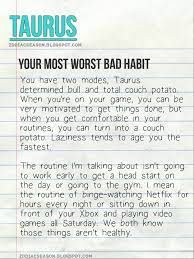 TAURUS
ZODIACSEASON.BLOGSPOT.COM
YOUR MOST WORST BAD HABIT
You have two modes, Taurus
determined bull and total couch potato.
When you're on your game, you can be
very motivated to get things done, but
when you get comfortable in your
routines, you can turn into a couch
potato. Laziness tends to plague you
as you age.
The routine I'm talking about isn't going
to work early to get a head start on
the day or going to the gym. I mean
the routine of binge-watching Netflix for
hours every night or sitting down in
front of your Xbox and playing video
games all Saturday. We both know
those things aren't healthy.
ZODIACSEASON.BLOGSPOT.COM